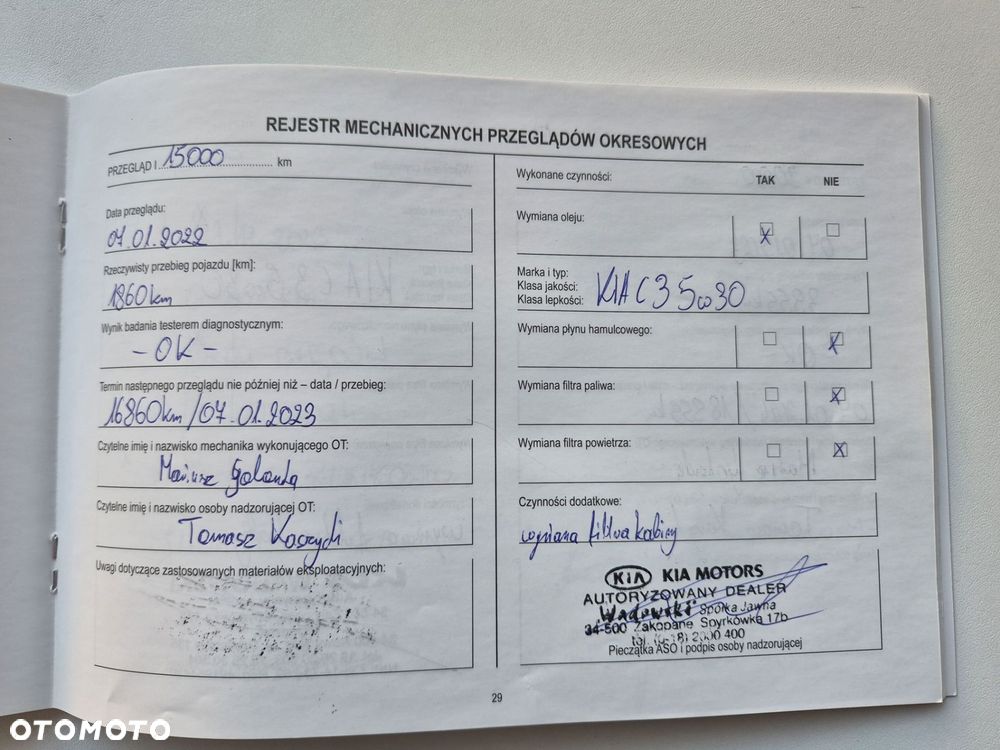 REJESTR MECHANICZNYCH PRZEGLĄDÓW OKRESOWYCH
PRZEGLĄD I 15000 km
Data przeglądu:
07.01.2022
Rzeczywisty przebieg pojazdu [km]:
1860km
Wynik badania testerem diagnostycznym:
- OK -
Termin następnego przeglądu nie później niż – data / przebieg:
16860km / 07.01.2023
Czytelne imię i nazwisko mechanika wykonującego OT:
Mariusz
Czytelne imię i nazwisko osoby nadzorującej OT:
Tomasz
Uwagi dotyczące zastosowanych materiałów eksploatacyjnych:
Wykonane czynności: TAK NIE
Wymiana oleju: X
Marka i typ:
Klasa jakości:
Klasa lepkości:
KIA C3 5w30
Wymiana płynu hamulcowego: X
Wymiana filtra paliwa: X
Wymiana filtra powietrza: X
Czynności dodatkowe:
wymiana filtra kabiny
KIA KIA MOTORS
AUTORYZOWANY DEALER
Spółka Jawna
34-500 Zakopane Spyrkówka 17b
tel. (0-18) 2000 400
Pieczątka ASO i podpis osoby nadzorującej
29
OTOMOTO